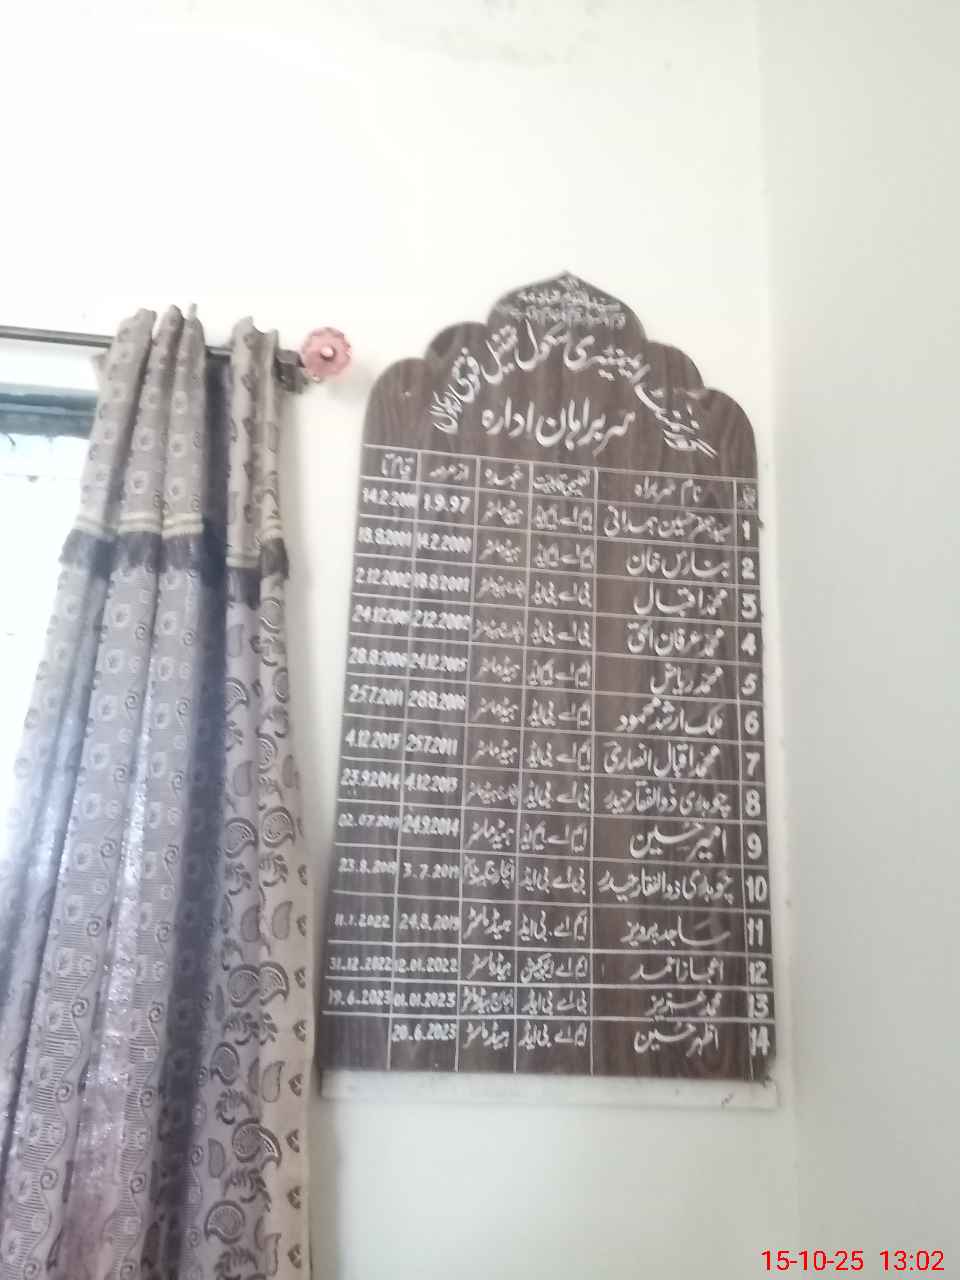 گورنمنٹ ایلیمنٹری سکول
سربراہان ادارہ
نام سربراہ تعلیمی قابلیت عہدہ از عرصہ قیام تا
1 سید جعفر حسین ہمدانی ایم اے ایم ایڈ ہیڈ ماسٹر 1.9.97 14.2.2000
2 بنارس خان ایم اے ایم ایڈ ہیڈ ماسٹر 14.2.2000 18.8.2001
3 محمد اقبال بی اے بی ایڈ 18.8.2001 2.12.2002
4 محمد عرفان الحق بی اے بی ایڈ 2.12.2002 24.12.2005
5 محمد ریاض ایم اے ایم ایڈ ہیڈ ماسٹر 24.12.2005 28.8.2006
6 ملک ارشد محمود ایم اے بی ایڈ ہیڈ ماسٹر 28.8.2006 25.7.2011
7 محمد اقبال انصاری ایم اے بی ایڈ ہیڈ ماسٹر 25.7.2011 4.12.2013
8 چوہدری ذوالفقار حیدر بی اے بی ایڈ 4.12.2013 23.9.2014
9 امیر حسین ایم اے ایم ایڈ ہیڈ ماسٹر 24.9.2014 02.07.2019
10 چوہدری ذوالفقار حیدر بی اے بی ایڈ 3.7.2019 23.8.2019
11 ساجد پرویز ایم اے۔بی ایڈ ہیڈ ماسٹر 24.8.2019 11.1.2022
12 اعجاز احمد ایم اے ایجوکیشن ہیڈ ماسٹر 12.01.2022 31.12.2022
13 محمد عزیز بی اے بی ایڈ 01.01.2023 19.6.2023
14 اظہر حسین ایم اے بی ایڈ ہیڈ ماسٹر 20.6.2023
15-10-25 13:02